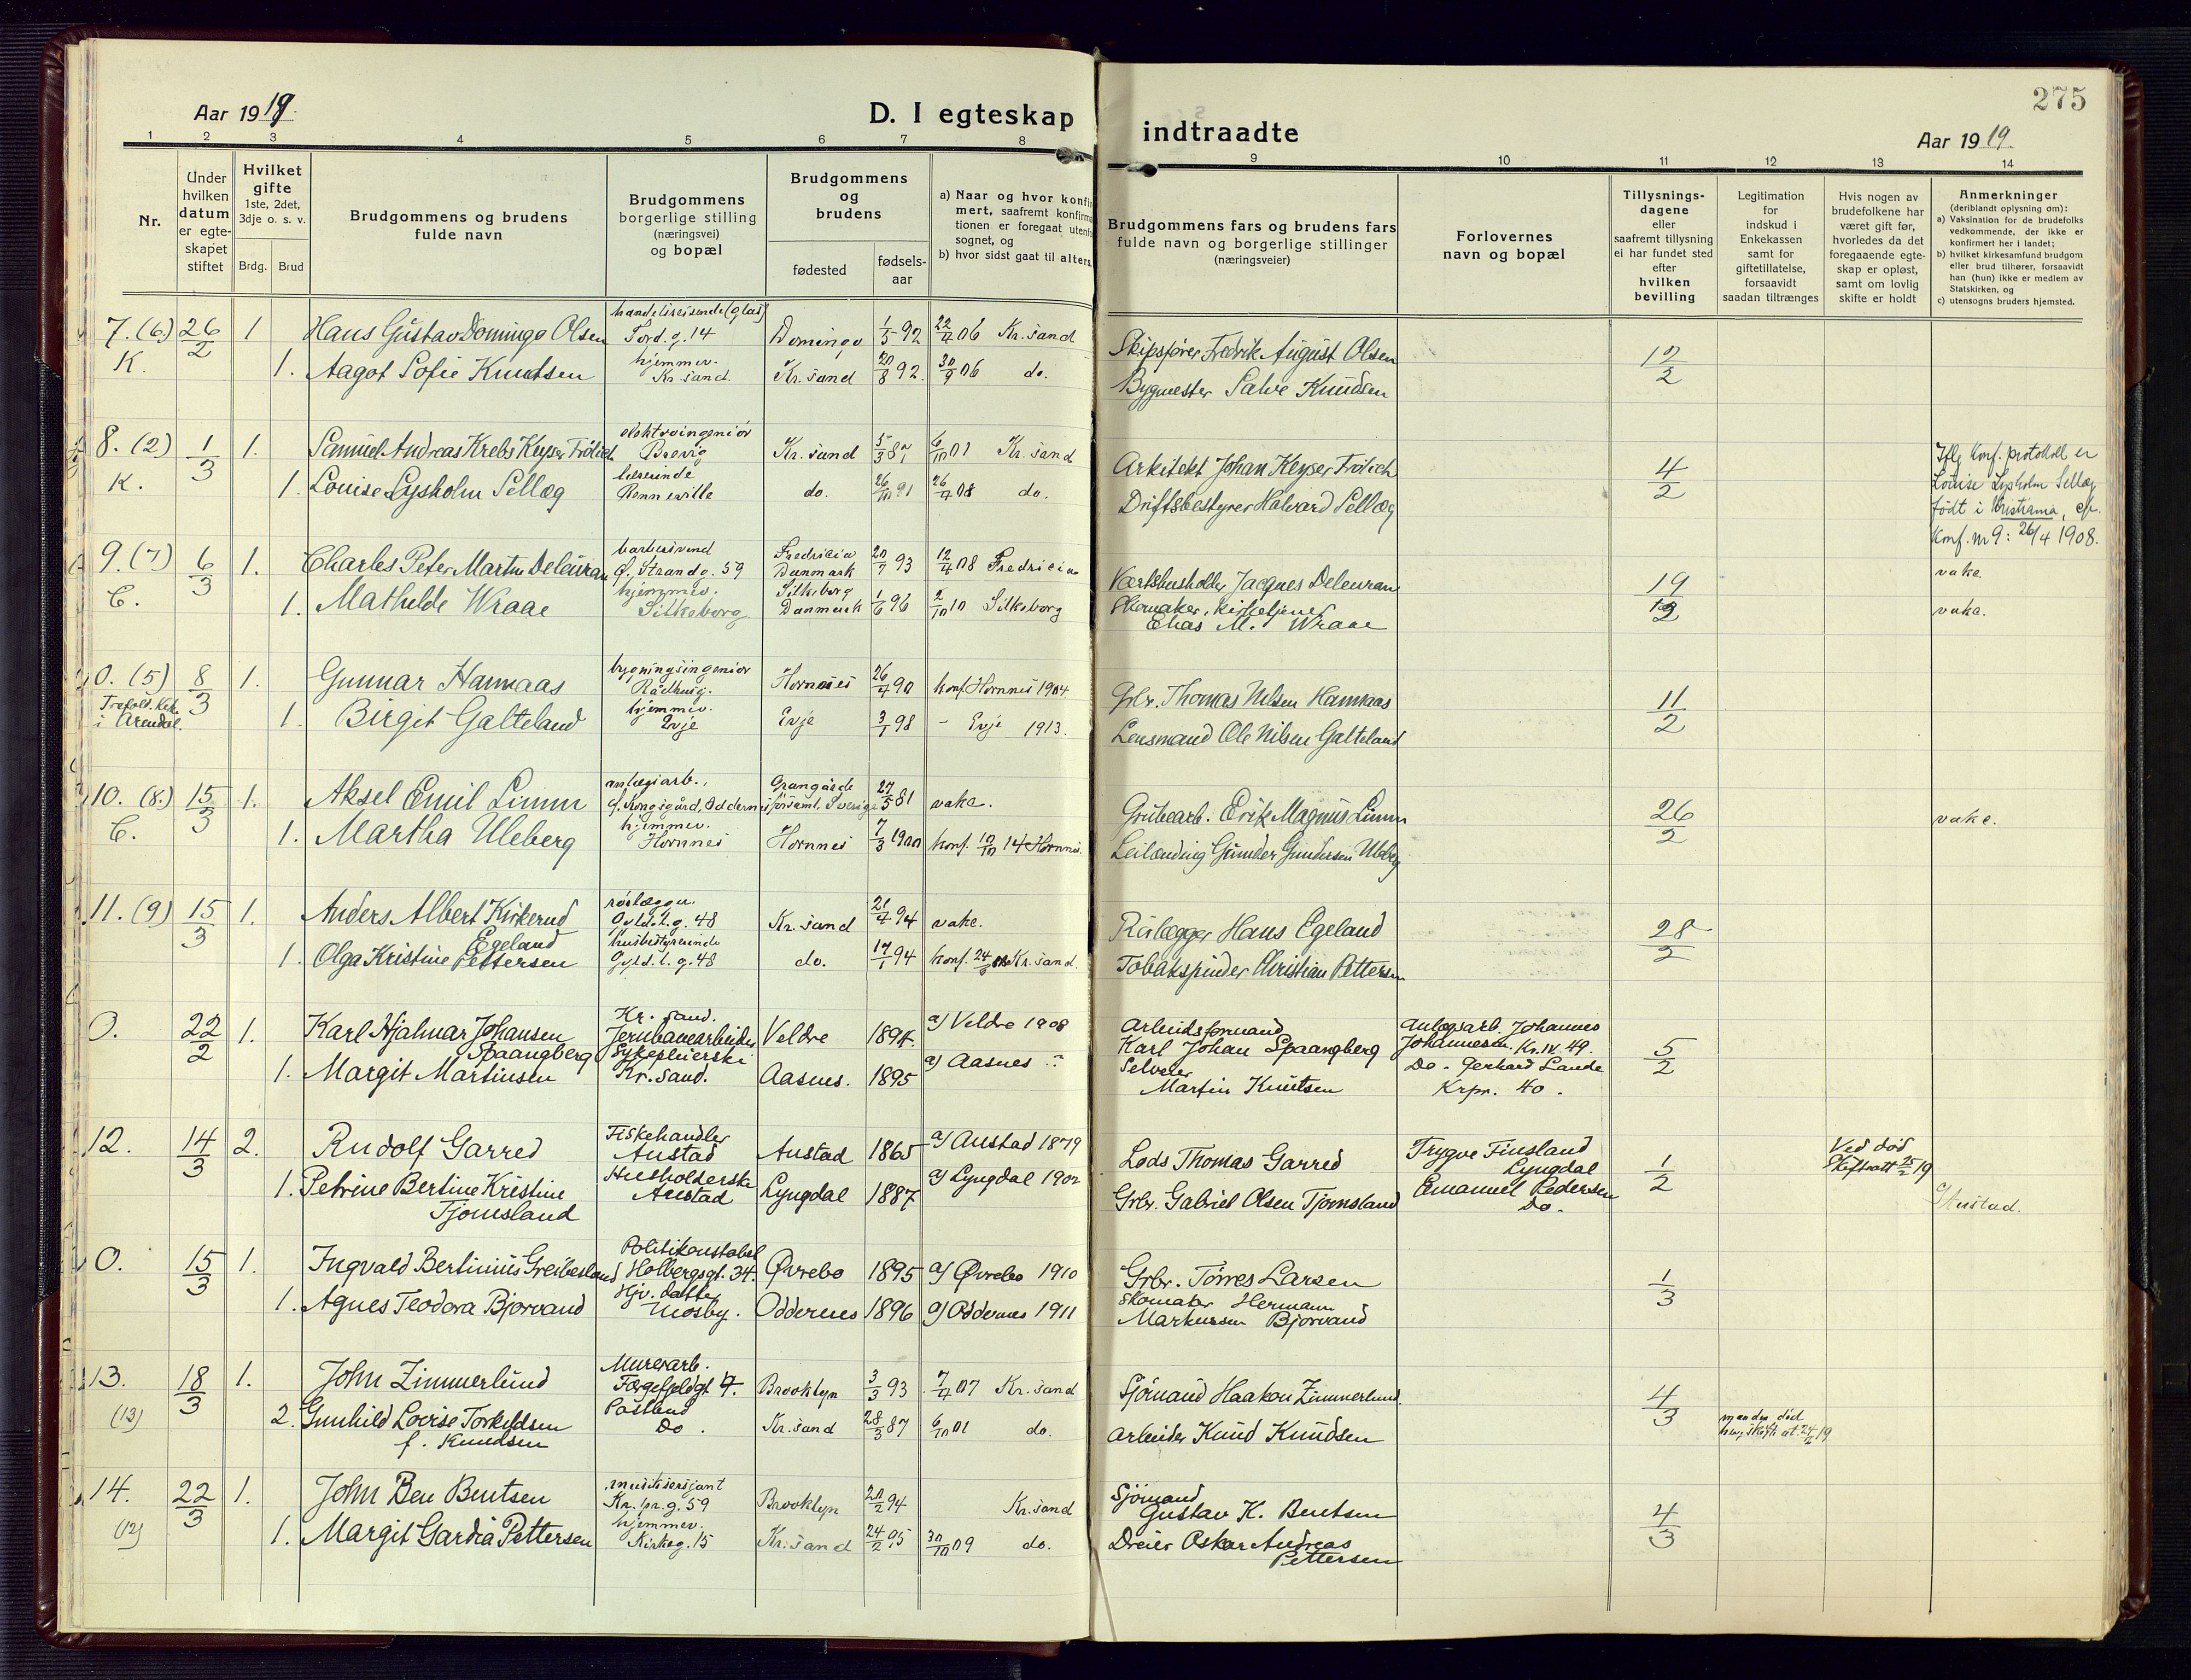 275
Aar 1919.
D. I egteskap
indtraadte
Aar 1919.
1 2 3 4 5 6 7 8 9 10 11 12 13 14
Nr.
Under hvilken datum er egteskapet stiftet
Hvilket gifte 1ste, 2det, 3dje o. s. v.
Brdg. Brud
Brudgommens og brudens fulde navn
Brudgommens borgerlige stilling (næringsvei) og bopæl
Brudgommens og brudens
fødested
fødsels-aar
a) Naar og hvor konfir
mert, saafremt konfirma
tionen er foregaat utenfo
sognet, og
b) hvor sidst gaat til alters.
Brudgommens fars og brudens fars fulde navn og borgerlige stillinger (næringsveier)
Forlovernes navn og bopæl
Tillysnings-dagene eller saafremt tillysning ei har fundet sted efter hvilken bevilling
Legitimation for indskud i Enkekassen samt for giftetillatelse, forsaavidt saadan tiltrænges
Hvis nogen av brudefolkene har været gift før, hvorledes da det foregaaende egte-skap er opløst, samt om lovlig skifte er holdt
Anmerkninger
(deriblandt oplysning om):
a) Vaksination for de brudefolks vedkommende, der ikke er konfirmert her i landet;
b) hvilket kirkesamfund brudgom eller brud tilhører, forsaavidt han (hun) ikke er medlem av Statskirken, og
c) utensogns bruders hjemsted.
7. (6.) 26/2 1 Hans Gustav Domingo Olsen handelsreisende (glas) Tord. g. 14 Domingo 1/5 92 22/4 06 Kr.sand Skipsfører Fredrik August Olsen 12/2
K. 1. Aagot Sofie Knudsen hjemmev. Kr.sand. Kr.sand 20/8 92. 30/9 06 do. Bygmester Salve Knudsen
8. (2) 1/3 1. Samuel Andreas Krebs Keyser Frölich elektroingeniör Brevig Kr.sand 5/3 87 6/10 01 Kr.sand Arkitekt Johan Keyser Frölich 4/2
K. 1. Louise Lysholm Sellæg Rennesville do. 26/10 91 26/4 08 do. Driftsbestyrer Halvard Sellæg
Iflg konf. protokoll er
Louise Lysholm Sellæg
født i Kristiania, cfr.
konf. nr 9: 26/4 1908.
9. (7) 6/3 1. Charles Peter Martin Deleuran barbersvend Ø. Strandg. 59 Fredricia Danmark 20/7 93 12/4 08 Fredricia Værtshusholder Jacques Deleuran 19/2 vakc.
C. 1. Mathilde Wraae hjemmev. Silkeborg Silkeborg Danmark 1/6 96 2/10 10 Silkeborg Skomaker, kirketjener Elias M. Wraae vakc.
0. (5) 8/3 1. Gunnar Hannaas bygningsingeniör Rådhusg. Hornnes 26/4 90 konf. Hornnes 1904 Grbr. Thomas Nilsen Hannaas 11/2
Trefold. Kirk.
i Arendal. 1. Birgit Galteland hjemmev. Evje Evje 3/1 98 - Evje 1913. Lensmand Ole Nilsen Galteland
10. (8.) 15/3 1. Aksel Emil Linnn anlægsarb., Ø. Kongsgård, Oddernes Grangärde församl. Sverige 27/5 81 vakc. Grubearb. Erik Magnus Linnn 26/2 vakc.
C. 1. Martha Uleberg hjemmev. Hornnes Hornnes 7/3 1900 konf. 10/10 14 Hornnes. Leilænding Gunder Gundersen Uleberg
11. (9) 15/3 1. Anders Albert Kirkerud Egeland rörlægger. Gyld.l.g. 48 Kr.sand 21/4 94 vakc. Rörlegger Hans Egeland 28/2
1. Olga Kristine Pettersen husbestyrerinde Gyld.l.g. 48 do. 17/1 94 konf. Kr.sand. Tobakspinder Christian Pettersen
0. 22/2 1. Karl Hjalmar Johansen Spaangberg Kr.sand. Jernbanearbeider Veldre 1894. a) Veldre 1908 Arbeidsformand Karl Johan Spaangberg Anlægsarb. Johannes Johannesen. Kr.IV. 49. 5/2
1. Margit Martinsen Sykepleierske Kr.sand. Aasnes. 1895 a) Aasnes ? Selveier Martin Knutsen Do - Gerhard Lande Krpr. 40.
12. 14/3 2. Rudolf Garred Fiskehandler Austad Austad 1865 a) Austad 1879 Lods Thomas Garred Trygve Finsland Lyngdal 1/2 Ved död Skifteatt 25/2 19
1. Petrine Bertine Kristine Tjomsland Husholderske Austad Lyngdal 1887 a) Lyngdal 1902 Grbr. Gabriel Olsen Tjomsland Emanuel Pedersen Do. c) Austad.
0. 15/3 1. Ingvald Bertinius Greibesland Politikonstabel Holbergsgt. 34. Øvrebo 1895 a) Øvrebo 1910 Grbr. Törres Larsen 1/3
1. Agnes Teodora Bjorvand Hjv. datter Mosby. Oddernes 1896 a) Oddernes 1911 Skomaker Hermann Markussen Bjorvand
13. 18/3 1. John Zimmerlund Murerarb. Færgefjeldgt 7. Brooklyn 3/3 93 7/4 07 Kr.sand Sjömand Haakon Zimmerlund. 4/3
(13) 2. Gunhild Lovise Torkildsen f. Knudsen Do. Kr.sand 28/3 87 6/10 01 do. Arbeider Knud Knudsen manden död
14. 22/3 1. John Ben Bentsen musikersjant Kr.pr.g. 59 Brooklyn 20/2 94 Kr.sand Sjömand Gustav K. Bentsen 4/3
(12) 1. Margit Gardia Pettersen hjemmev. Kirkeg. 15 Kr.sand 24/2 95 30/10 09 do. Dreier Oskar Andreas Pettersen